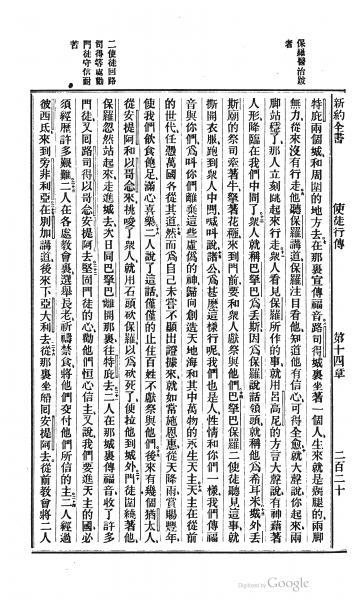 新約全書 使徒行傳 第十四章 二百二十
保羅醫治跛
者
特庇兩個城和周圍的地方去在那裏宣傳福音路司得城裏坐著一個人生來就是瘸腿的兩脚
無力從來沒有行走他聽保羅講道保羅注目看他知道他有信心可得全愈就大聲說你起來兩
脚站穩了那人立刻跳起來行走眾人看見保羅所作的事就用呂高尼的方言大聲說有神藉著
人形降臨在我們中間了眾人就稱巴拏巴為丟斯因為保羅說話領頭就稱他為希耳米城外丟
斯廟的祭司牽著牛拏著花穗來到門前要和眾人獻祭與他們巴拏巴保羅二使徒聽見這事就
撕開衣服跑到眾人中間喊叫說諸公為甚麽這樣行呢我們也是人性情和你們一樣我們傳福
音與你們為叫你們離棄這些虛僞的神歸向創造天地海和其中萬物的永生天主天主在從前
的世代任憑萬國各從其道然而為自己未嘗不顯出證據來就如常施恩惠從天降雨賞賜豐年
使我們飲食飽足滿心喜樂二人說了這話僅僅的止住百姓不獻祭與他們後來有幾個猶太人
從安提阿和以哥念來挑唆了眾人就用石頭砍保羅以為砍死了便拉他到城外門徒圍繞著他
二使徒回路
司得等處勸
門徒守信耐
苦
保羅忽然站起來走進城去次日同巴拏巴離開那裏往特庇去二人在那城裏傳福音收了許多
門徒又回路司得以哥念安提阿去堅固門徒的心勸他們恒心信主又說我們要進天主的國必
須經歷許多艱難二人在各處教會裏選舉長老祈禱禁食將他們交付他們所信的主二人經過
彼西氐來到旁非利亞在別加講道後來下亞大利去從那裏坐船回安提阿去從前教會將二人
Digitized by Google